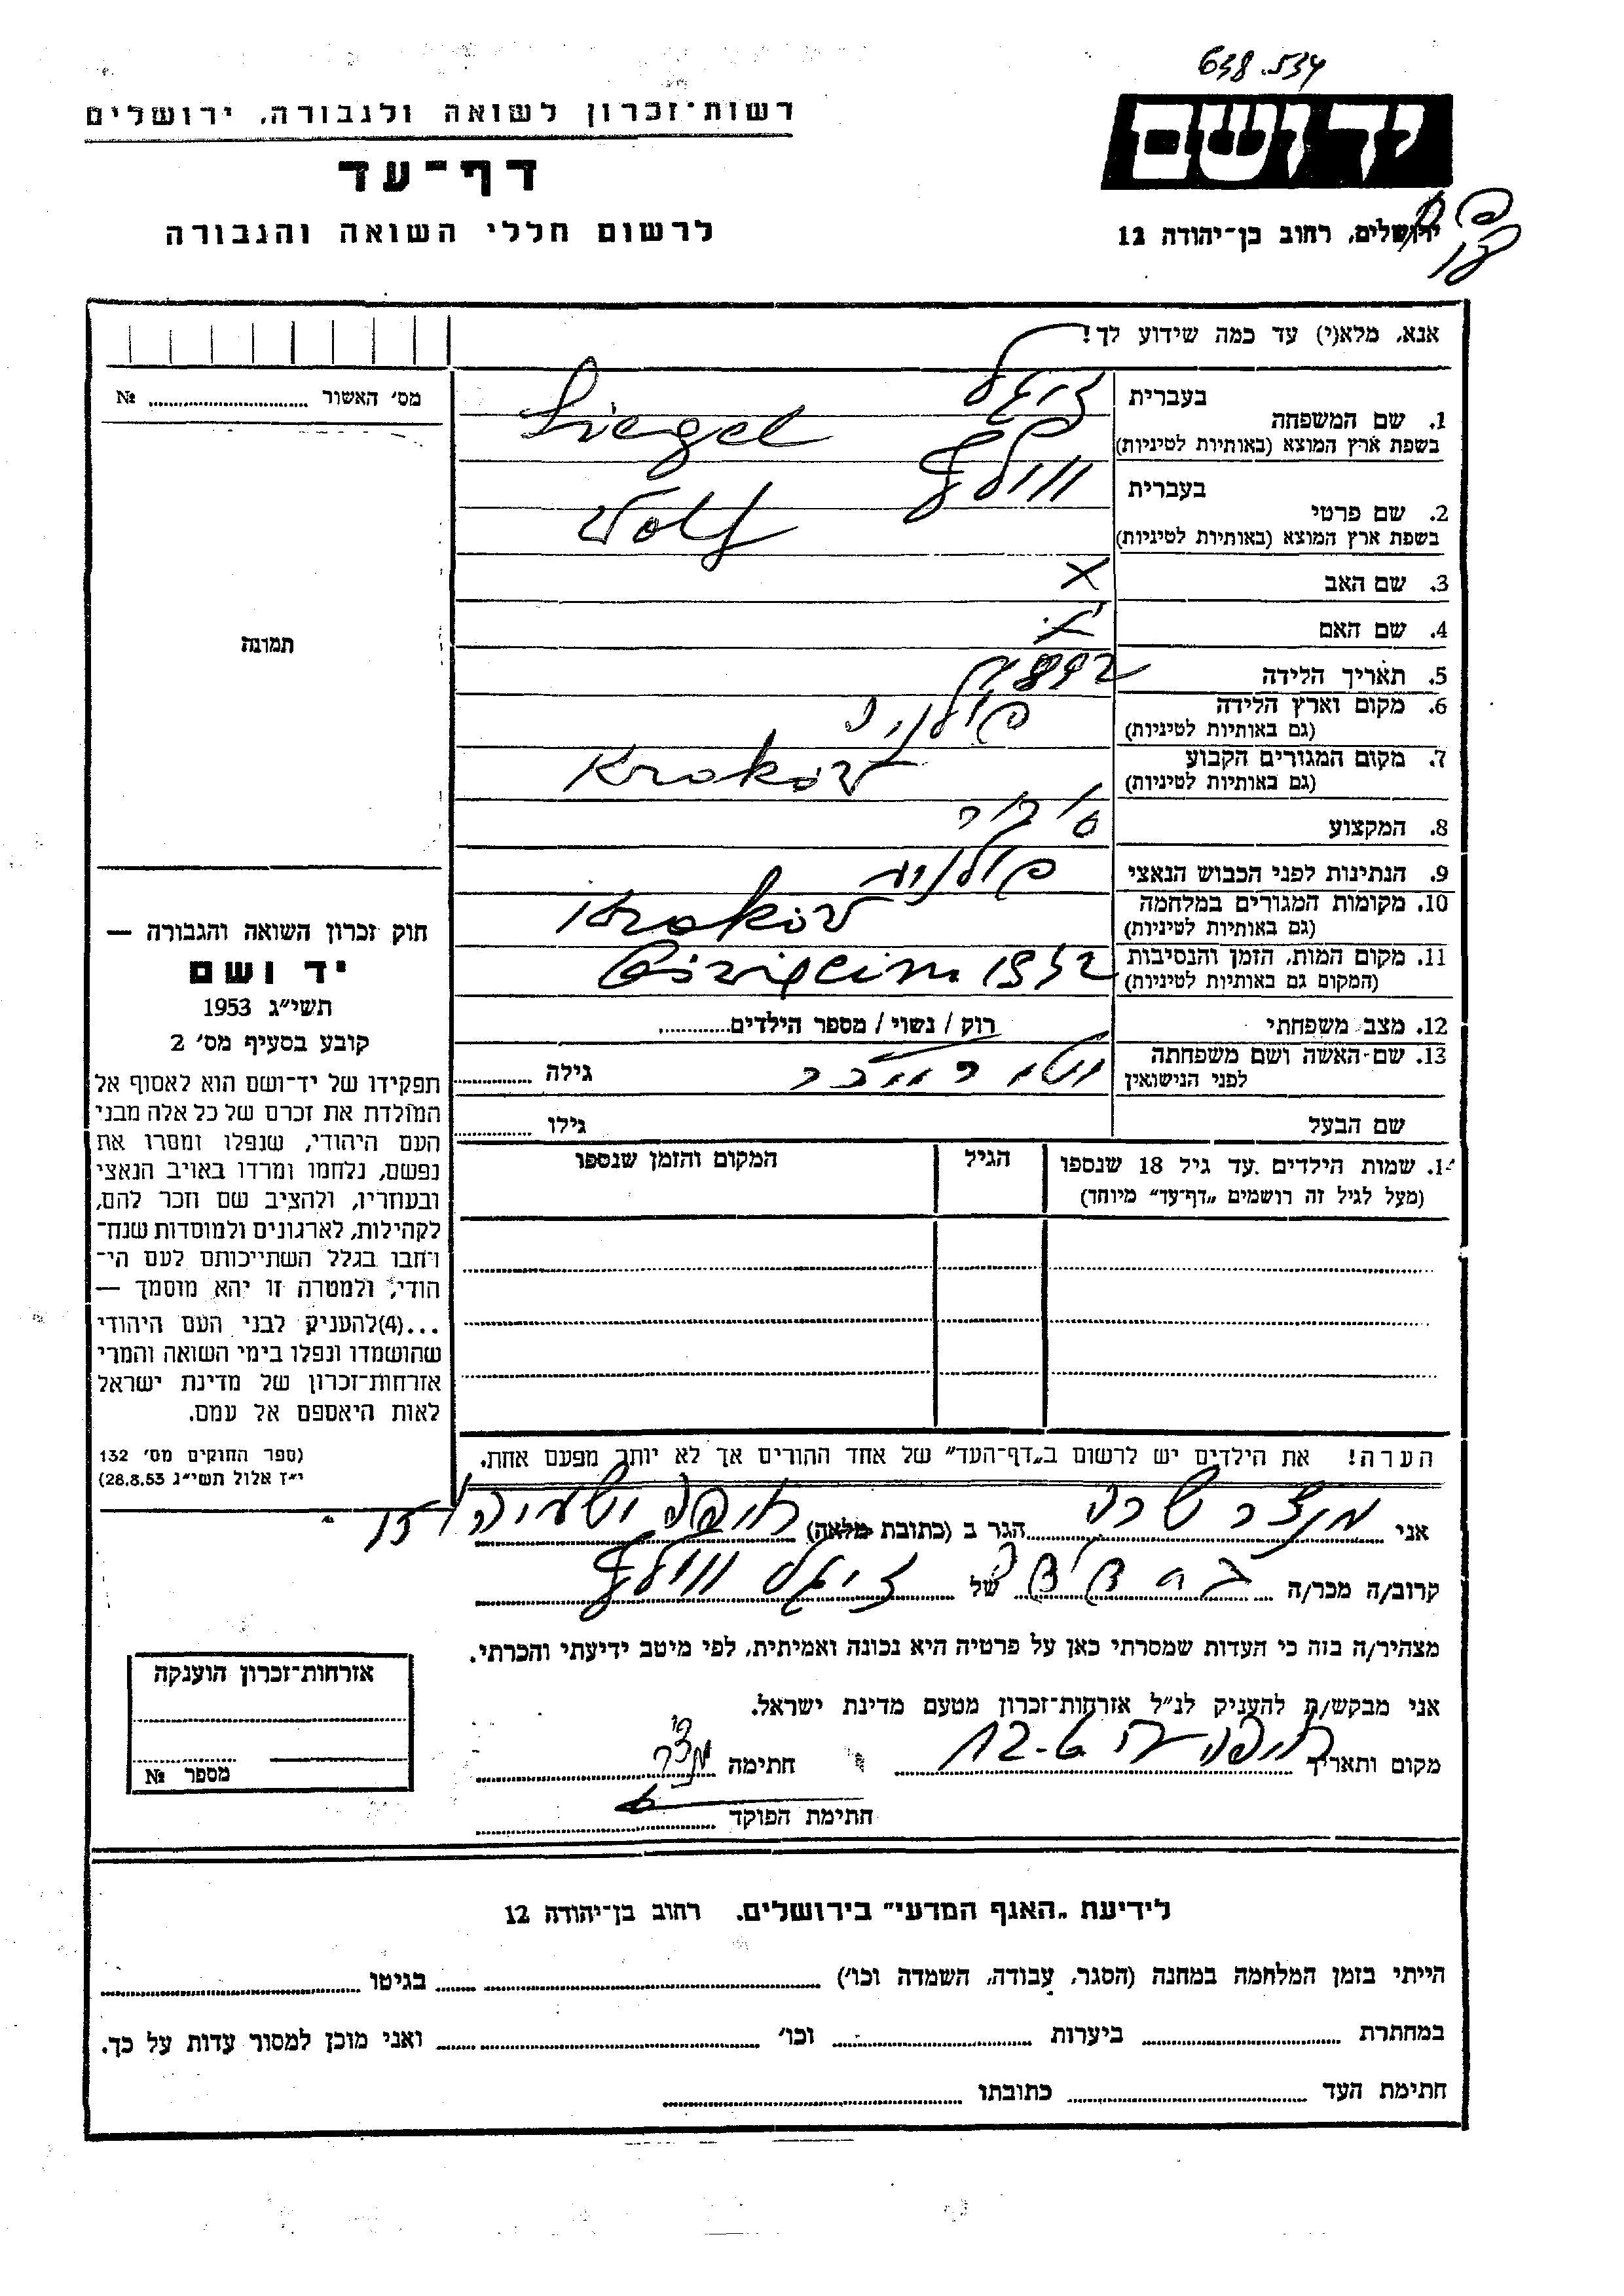 638.534
יד ושם
רשות־זכרון לשואה ולגבורה, ירושלים
דף־עד
לרשום חללי השואה והגבורה
ירושלים, רחוב בן־יהודה 12
אנא, מלא(י) עד כמה שידוע לך!
מס׳ האשור № 
בעברית זיגל
1. שם המשפחה
בשפת ארץ המוצא (באותיות לטיניות) Siegel
בעברית וולף
2. שם פרטי
בשפת ארץ המוצא (באותיות לטיניות) Wolf
3. שם האב X
4. שם האם X
5. תאריך הלידה 1892
6. מקום וארץ הלידה פולניה
(גם באותיות לטיניות)
7. מקום המגורים הקבוע Kraków
(גם באותיות לטיניות)
8. המקצוע
9. הנתינות לפני הכבוש הנאצי פולנית
10. מקומות המגורים במלחמה Krakow
(גם באותיות לטיניות)
11. מקום המות, הזמן והנסיבות
(המקום גם באותיות לטיניות)
12. מצב משפחתי רוק / נשוי / מספר הילדים
13. שם־האשה ושם משפחתה
לפני הנישואין גילה
שם הבעל גילו
שמות הילדים עד גיל 18 שנספו הגיל המקום והזמן שנספו
(מעל לגיל זה רושמים „דף־עד״ מיוחד)
הערה! את הילדים יש לרשום ב„דף־העד״ של אחד ההורים אך לא יותר מפעם אחת.
תמונה
חוק זכרון השואה והגבורה —
יד ושם
תשי״ג 1953
קובע בסעיף מס׳ 2
תפקידו של יד־ושם הוא לאסוף אל
המולדת את זכרם של כל אלה מבני
העם היהודי, שנפלו ומסרו את
נפשם, נלחמו ומרדו באויב הנאצי
ובעוזריו, ולהציב שם וזכר להם,
לקהילות, לארגונים ולמוסדות שנח־
רבו בגלל השתייכותם לעם הי־
הודי, ולמטרה זו יהא מוסמך —
...(4) להעניק לבני העם היהודי
שהושמדו ונפלו בימי השואה והמרי
אזרחות־זכרון של מדינת ישראל
לאות היאספם אל עמם.
(ספר החוקים מס׳ 132
י״ז אלול תשי״ג 28.8.53)
אני מנצר שרה הגר ב (כתובת מלאה) חיפה
קרוב/ה מכר/ה של זיגל וולף
מצהיר/ה בזה כי העדות שמסרתי כאן על פרטיה היא נכונה ואמיתית, לפי מיטב ידיעתי והכרתי.
אני מבקש/ת להעניק לנ״ל אזרחות־זכרון מטעם מדינת ישראל.
מקום ותאריך חיפה חתימה
חתימת הפוקד
אזרחות־זכרון הוענקה
מספר №
לידיעת „האגף המדעי״ בירושלים. רחוב בן־יהודה 12
הייתי בזמן המלחמה במחנה (הסגר, עבודה, השמדה וכו׳) בגיטו
במחתרת ביערות וכו׳ ואני מוכן למסור עדות על כך.
חתימת העד כתובתו